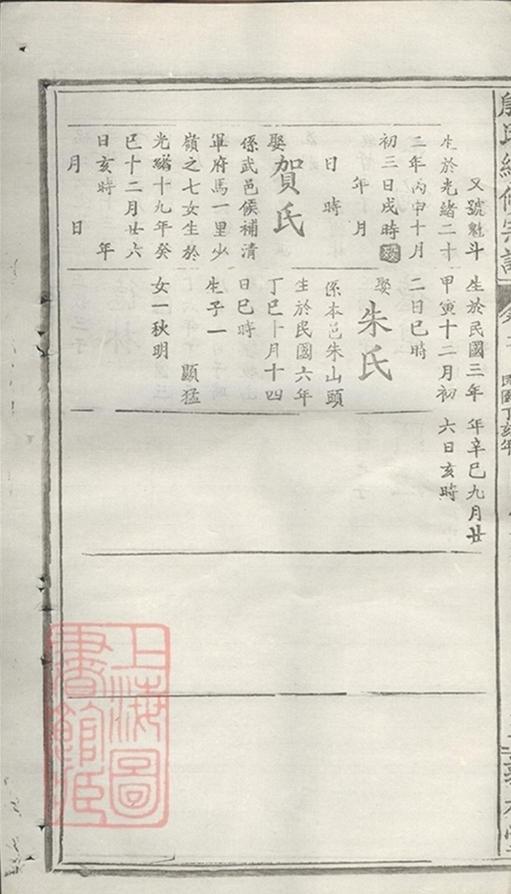 又號魁斗
生於光緒二十
二年丙申十月
初三日戌時
年月
日時
娶賀氏
係武邑候補清
軍府馬一里少
嶺之七女生於
光緒十九年癸
巳十二月廿六
日亥時　年
月　日
生於民國三年
甲寅十二月初
二日巳時
娶朱氏
係本邑朱山頭
生於民國六年
丁巳十月十四
日巳時
生子一　顯猛
女一秋明
年辛巳九月廿
六日亥時
民國丁亥年
上海圖書館藏